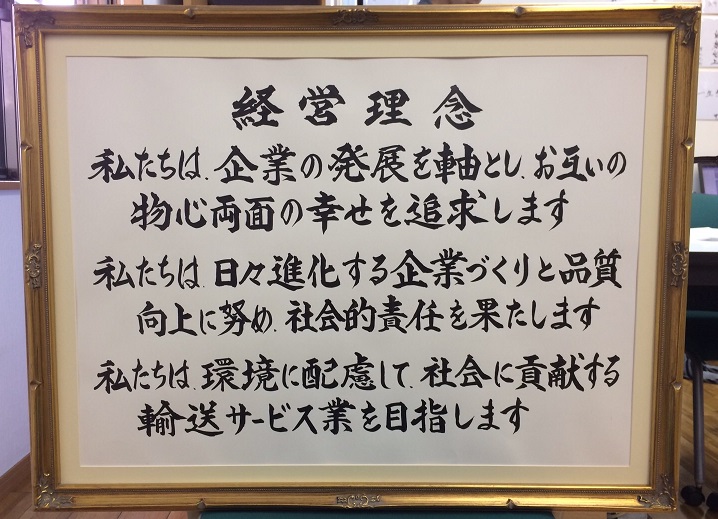 経営理念
私たちは、企業の発展を軸とし、お互いの
物心両面の幸せを追求します
私たちは、日々進化する企業づくりと品質
向上に努め、社会的責任を果たします
私たちは、環境に配慮して、社会に貢献する
輸送サービス業を目指します